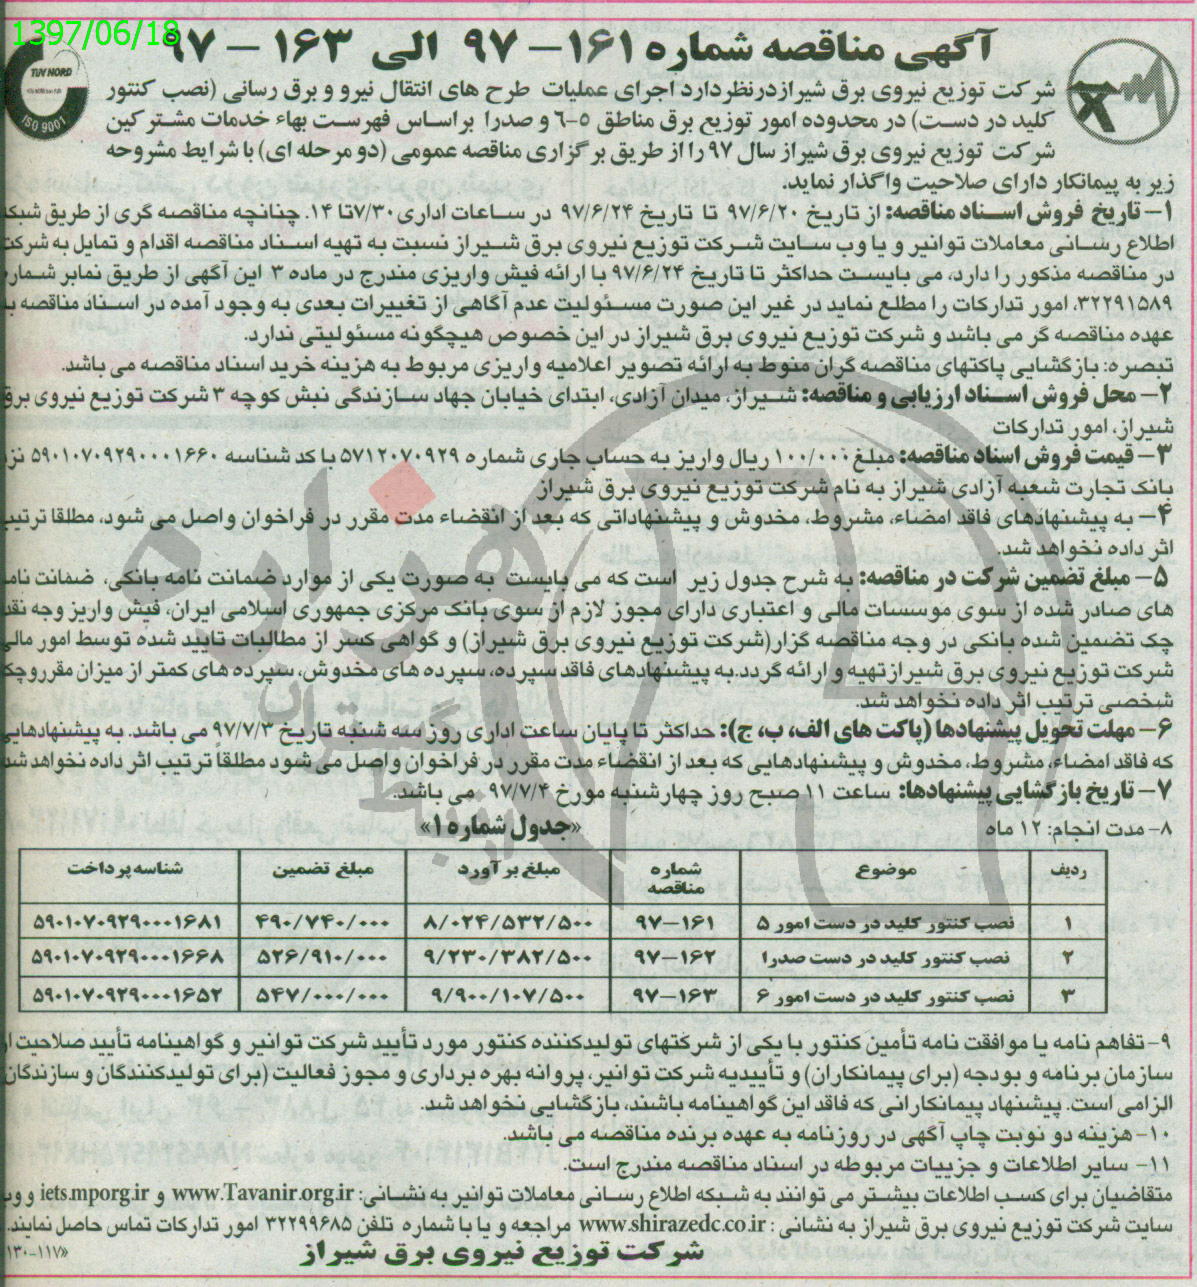 1397/06/18
آگهی مناقصه شماره ۱۶۱– ۹۷ الی ۱۶۳ – ۹۷
TUV NORD
ISO 9001
شرکت توزیع نیروی برق شیراز درنظردارد اجرای عملیات طرح های انتقال نیرو و برق رسانی (نصب کنتور
کلید در دست) در محدوده امور توزیع برق مناطق ۵-۶ و صدرا براساس فهرست بهاء خدمات مشترکین
شرکت توزیع نیروی برق شیراز سال ۹۷ را از طریق برگزاری مناقصه عمومی (دو مرحله ای) با شرایط مشروحه
زیر به پیمانکار دارای صلاحیت واگذار نماید.
۱– تاریخ فروش اسناد مناقصه: از تاریخ ۹۷/۶/۲۰ تا تاریخ ۹۷/۶/۲۴ در ساعات اداری ۷/۳۰تا ۱۴. چنانچه مناقصه گری از طریق شبکه
اطلاع رسانی معاملات توانیر و یا وب سایت شرکت توزیع نیروی برق شیراز نسبت به تهیه اسناد مناقصه اقدام و تمایل به شرکت
در مناقصه مذکور را دارد، می بایست حداکثر تا تاریخ ۹۷/۶/۲۴ با ارائه فیش واریزی مندرج در ماده ۳ این آگهی از طریق نمابر شماره
۳۲۲۹۱۵۸۹، امور تدارکات را مطلع نماید در غیر این صورت مسئولیت عدم آگاهی از تغییرات بعدی به وجود آمده در اسناد مناقصه به
عهده مناقصه گر می باشد و شرکت توزیع نیروی برق شیراز در این خصوص هیچگونه مسئولیتی ندارد.
تبصره: بازگشایی پاکتهای مناقصه گران منوط به ارائه تصویر اعلامیه واریزی مربوط به هزینه خرید اسناد مناقصه می باشد.
۲– محل فروش اسناد ارزیابی و مناقصه: شیراز، میدان آزادی، ابتدای خیابان جهاد سازندگی نبش کوچه ۳ شرکت توزیع نیروی برق
شیراز، امور تدارکات
۳– قیمت فروش اسناد مناقصه: مبلغ ۱۰۰/۰۰۰ ریال واریز به حساب جاری شماره ۵۷۱۲۰۷۰۹۲۹ با کد شناسه ۵۹۰۱۰۷۰۹۲۹۰۰۰۱۶۶۰ نزد
بانک تجارت شعبه آزادی شیراز به نام شرکت توزیع نیروی برق شیراز
۴– به پیشنهادهای فاقد امضاء، مشروط، مخدوش و پیشنهاداتی که بعد از انقضاء مدت مقرر در فراخوان واصل می شود، مطلقا ترتیب
اثر داده نخواهد شد.
۵– مبلغ تضمین شرکت در مناقصه: به شرح جدول زیر است که می بایست به صورت یکی از موارد ضمانت نامه بانکی، ضمانت نامه
های صادر شده از سوی موسسات مالی و اعتباری دارای مجوز لازم از سوی بانک مرکزی جمهوری اسلامی ایران، فیش واریز وجه نقد
چک تضمین شده بانکی در وجه مناقصه گزار(شرکت توزیع نیروی برق شیراز) و گواهی کسر از مطالبات تایید شده توسط امور مالی
شرکت توزیع نیروی برق شیراز تهیه و ارائه گردد.به پیشنهادهای فاقد سپرده، سپرده های مخدوش، سپرده های کمتر از میزان مقرر وچک
شخصی ترتیب اثر داده نخواهد شد.
۶– مهلت تحویل پیشنهادها (پاکت های الف، ب، ج): حداکثر تا پایان ساعت اداری روز سه شنبه تاریخ ۹۷/۷/۳ می باشد. به پیشنهادهایی
که فاقد امضاء، مشروط، مخدوش و پیشنهادهایی که بعد از انقضاء مدت مقرر در فراخوان واصل می شود مطلقاً ترتیب اثر داده نخواهد شد
۷– تاریخ بازگشایی پیشنهادها: ساعت ۱۱ صبح روز چهارشنبه مورخ ۹۷/۷/۴ می باشد.
۸– مدت انجام: ۱۲ ماه
«جدول شماره ۱»
ردیف موضوع شماره مناقصه مبلغ برآورد مبلغ تضمین شناسه پرداخت
۱ نصب کنتور کلید در دست امور ۵ ۹۷–۱۶۱ ۸/۰۲۴/۵۳۲/۵۰۰ ۴۹۰/۷۴۰/۰۰۰ ۵۹۰۱۰۷۰۹۲۹۰۰۰۱۶۸۱
۲ نصب کنتور کلید در دست صدرا ۹۷–۱۶۲ ۹/۲۳۰/۳۸۲/۵۰۰ ۵۲۶/۹۱۰/۰۰۰ ۵۹۰۱۰۷۰۹۲۹۰۰۰۱۶۶۸
۳ نصب کنتور کلید در دست امور ۶ ۹۷–۱۶۳ ۹/۹۰۰/۱۰۷/۵۰۰ ۵۴۷/۰۰۰/۰۰۰ ۵۹۰۱۰۷۰۹۲۹۰۰۰۱۶۵۲
۹– تفاهم نامه یا موافقت نامه تأمین کنتور با یکی از شرکتهای تولیدکننده کنتور مورد تأیید شرکت توانیر و گواهینامه تأیید صلاحیت از
سازمان برنامه و بودجه (برای پیمانکاران) و تأییدیه شرکت توانیر، پروانه بهره برداری و مجوز فعالیت (برای تولیدکنندگان و سازندگان)
الزامی است. پیشنهاد پیمانکارانی که فاقد این گواهینامه باشند، بازگشایی نخواهد شد.
۱۰– هزینه دو نوبت چاپ آگهی در روزنامه به عهده برنده مناقصه می باشد.
۱۱– سایر اطلاعات و جزییات مربوطه در اسناد مناقصه مندرج است.
متقاضیان برای کسب اطلاعات بیشتر می توانند به شبکه اطلاع رسانی معاملات توانیر به نشانی: www.Tavanir.org.ir و iets.mporg.ir و وب
سایت شرکت توزیع نیروی برق شیراز به نشانی : www.shirazedc.co.ir مراجعه و یا با شماره تلفن ۳۲۲۹۹۶۸۵ امور تدارکات تماس حاصل نمایند.
شرکت توزیع نیروی برق شیراز
«۱۳۰-۱۱۷
هزاره